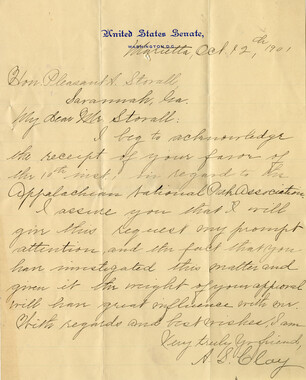 United States Senate,
WASHINGTON, D.C.
Marietta, Oct 12th, 1901
Hon Pleasant A. Stovall,
Savannah, Ga.
My dear Mr Stovall:
I beg to acknowledge
the receipt of your favor of
the 10th inst. in regard to the
Appalachian National Park Association
I assure you that I will
give this request my prompt
attention, and the fact that you
have investigated this matter and
given it the weight of your approval
will have great influence with me.
With regards and best wishes, I am
Very truly Yr friend,
A. S. Clay